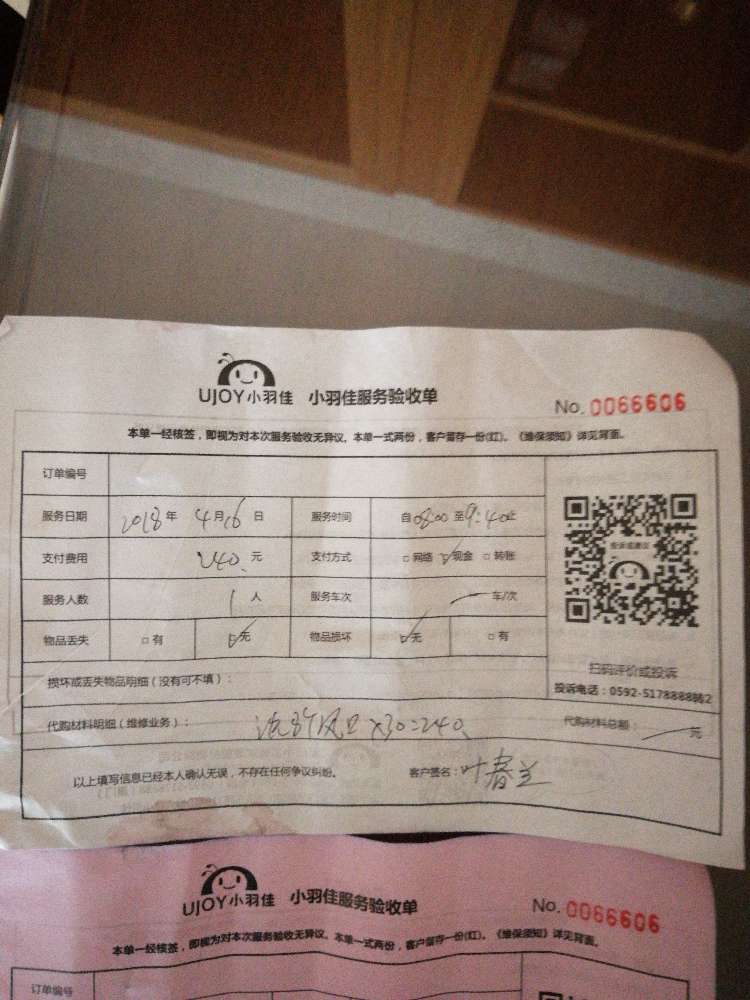 UJOY小羽佳 小羽佳服务验收单 No. 0066606
本单一经核签，即视为对本次服务验收无异议。本单一式两份，客户留存一份(红)。《维保须知》详见背面。
订单编号
服务日期 2018年 4月16日 服务时间 自08:00至9:40止
支付费用 240元 支付方式 □网络 ☑现金 □转账
服务人数 1人 服务车次 车/次
物品丢失 □有 ☑无 物品损坏 ☑无 □有
投诉或建议
扫码评价或投诉
投诉电话：0592-5178888转2
损坏或丢失物品明细（没有可不填）：
代购材料明细（维修业务）： X30=240 代购材料总额： 元
以上填写信息已经本人确认无误，不存在任何争议纠纷。 客户签名：叶春兰
UJOY小羽佳 小羽佳服务验收单 No. 0066606
本单一经核签，即视为对本次服务验收无异议。本单一式两份，客户留存一份(红)。《维保须知》详见背面。
订单编号